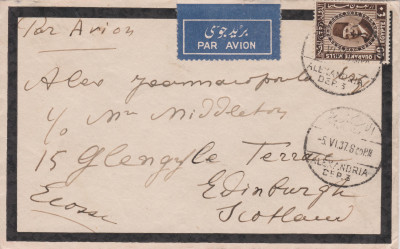 Par Avion
بريد جوى
PAR AVION
QUARANTE MILLS
ALEXANDRIA
DEP. 3
-5.VI.37.8
ALEXANDRIA
DEP. 3
Alex
c/o Mr Middleton
15 Glengyle Terrace
Edinburgh
Ecosse
Scotland